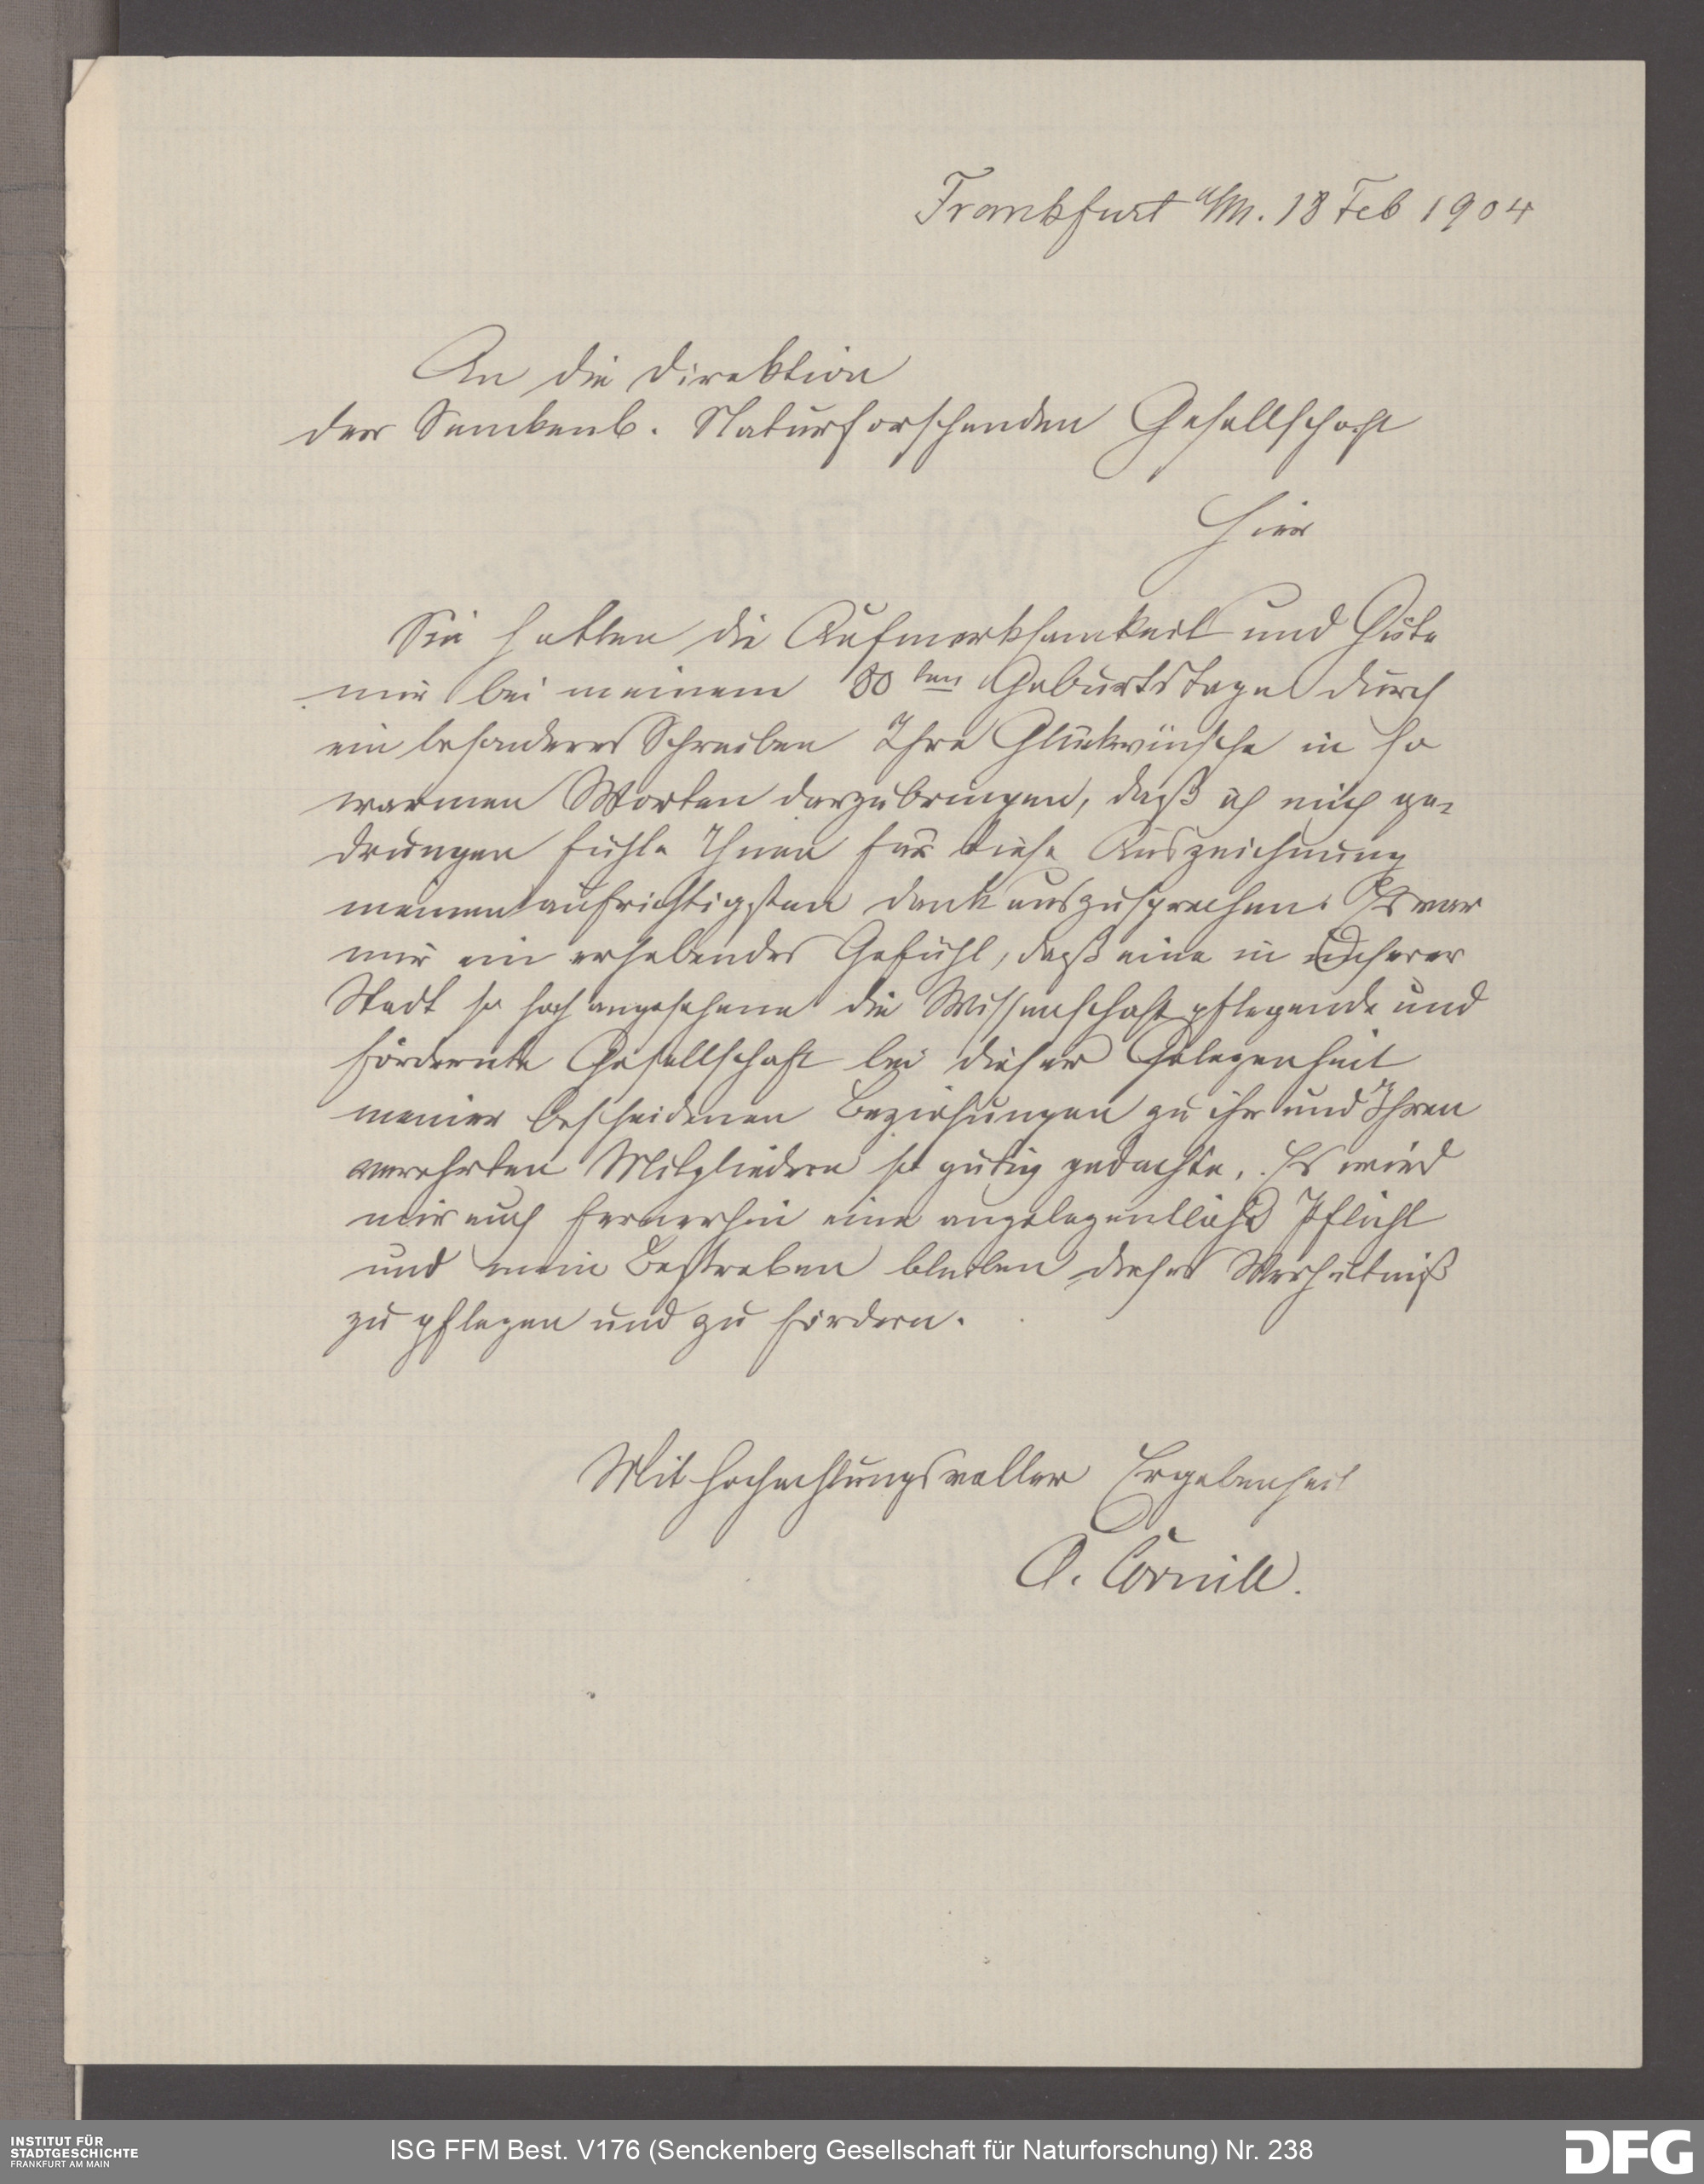 Frankfurt a/M. 18 Feb 1904
An die Direktion
der Senckenb. Naturforschenden Gesellschaft
Hier
Sie hatten die Aufmerksamkeit und Güte
mir bei meinem 80ten Geburtstage durch
ein besonderes Schreiben Ihre Glückwünsche in so
warmen Worten darzubringen, daß ich mich ge-
drungen fühle Ihnen für diese Auszeichnung
meinen aufrichtigsten Dank auszusprechen. Es war
mir ein erhebendes Gefühl, daß eine in unserer
Stadt so hoch angesehene die Wissenschaft pflegende und
fördernde Gesellschaft bei dieser Gelegenheit
meiner bescheidenen Beziehungen zu ihr und Ihren
verehrten Mitgliedern so gütig gedachte. Es wird
mir auch fernerhin eine angelegentliche Pflicht
und mein Bestreben bleiben dieses Verhältniß
zu pflegen und zu fördern.
Mit hochachtungsvoller Ergebenheit
O. Cornill.
INSTITUT FÜR
STADTGESCHICHTE
FRANKFURT AM MAIN
ISG FFM Best. V176 (Senckenberg Gesellschaft für Naturforschung) Nr. 238
DFG